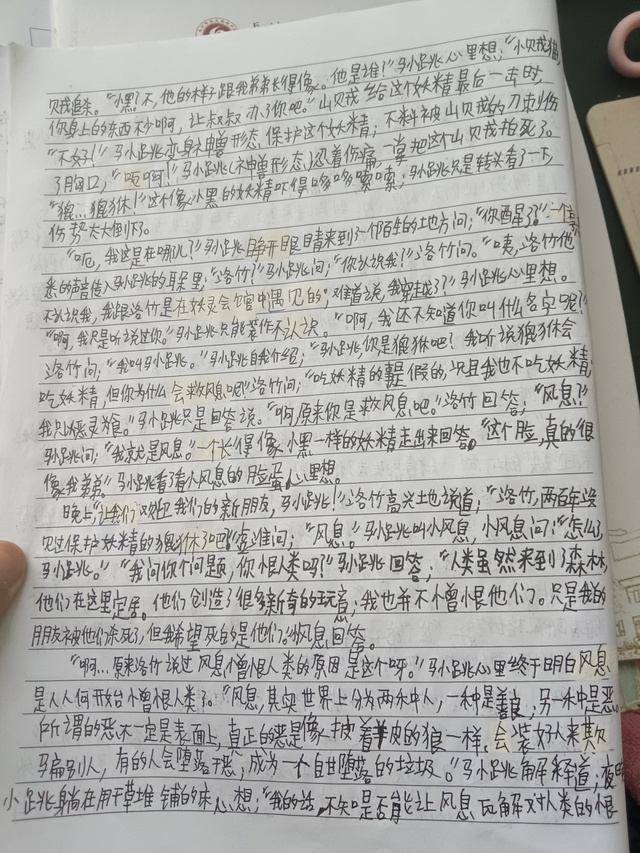 贝戎追杀。“小黑？不，他的样子跟我弟弟长得像。他是谁？”马小跳心里想；“小贝戎猫，
你身上的东西不少啊，让叔叔办了你吧。”山贝戎给这个妖精最后一击时，
“不好！”马小跳变身神兽形态保护这个妖精；不料被山贝戎的刀击伤
了胸口，“呃啊！”马小跳（神兽形态）忍着伤痛一掌把这个山贝戎拍死了。
“猊…猊狳！”这个像小黑的妖精吓得哆哆嗦嗦；马小跳只是转头看了一下，
伤势太大倒下了。
“呃，我这是在哪儿？”马小跳睁开眼睛来到了一个陌生的地方问；“你醒了？”一个熟
悉的声音传入马小跳的耳朵里；“洛竹？”马小跳问；“你认识我？”洛竹问。“咦，洛竹他
不认识我，我跟洛竹是在妖灵会馆中遇见的。难道说，我穿越了？”马小跳心里想。
“啊，我只是听说过你。”马小跳只能装作不认识。“啊，我还不知道你叫什么名字呢？”
洛竹问；“我叫马小跳。”马小跳自我介绍；“马小跳，你是猊狳吧？我听说猊狳会
吃妖精，但你为什么会救风息呢？”洛竹问；“吃妖精的是假的，况且我也不吃妖精；
我只以恶灵为食。”马小跳只是回答说。“啊，原来你是救风息吧。”洛竹回答；“风息？”
马小跳问；“我就是风息。”一个长得像小黑一样的妖精走出来回答。“这个脸，真的很
像我弟弟。”马小跳看了看小风息的脸蛋心里想。
晚上，“让我们欢迎我们的新朋友，马小跳！”洛竹高兴地说道；“洛竹，两百年没
见过保护妖精的猊狳了吧？”虚淮问；“风息。”马小跳叫小风息，小风息问；“怎么了，
马小跳。”“我问你个问题，你恨人类吗？”马小跳回答；“人类虽然来到了森林，
他们在这里定居。他们创造了很多新奇的玩意；我也并不憎恨他们。只是我的
朋友被他们杀死了，但我希望死的是他们。”风息回答。
“啊…原来洛竹说过风息憎恨人类的原因是这个呀。”马小跳心里终于明白风息
是从何开始憎恨人类了。“风息，其实世界上分为两种人，一种是善良，另一种是恶
所谓的恶不一定是表面上，真正的恶是像披着羊皮的狼一样，会装好人来欺
骗别人，有的人会堕落于恶，成为一个自甘堕落的垃圾。”马小跳解释道；夜晚
小跳躺在用干草堆铺的床心想；“我的话，不知是否能让风息瓦解对人类的恨